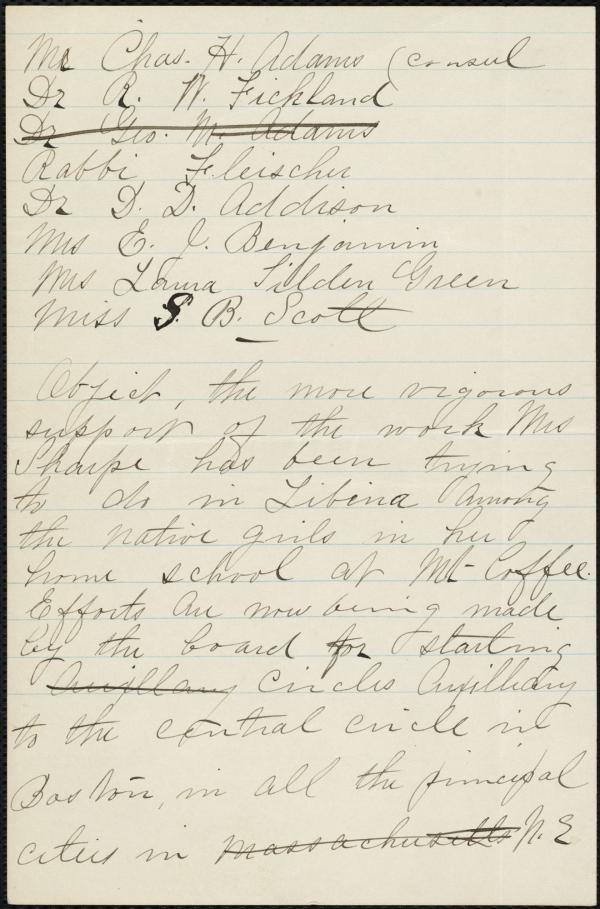 Mr Chas. H. Adams (consul
Dr R. W. Fickland
Dr Geo. M. Adams
Rabbi Fleischer
Dr D. D. Addison
Mrs E. J. Benjamin
Mrs Laura Tilden Green
Miss S. B. Scott
Object, the more vigorous
support of the work Mrs
Sharpe has been trying
to do in Liberia among
the native girls in her
home school at Mt Coffee.
Efforts are now being made
by the board for starting
Auxillary circles Auxilliary
to the central circle in
Boston, in all the principal
cities in Massachusetts N. E